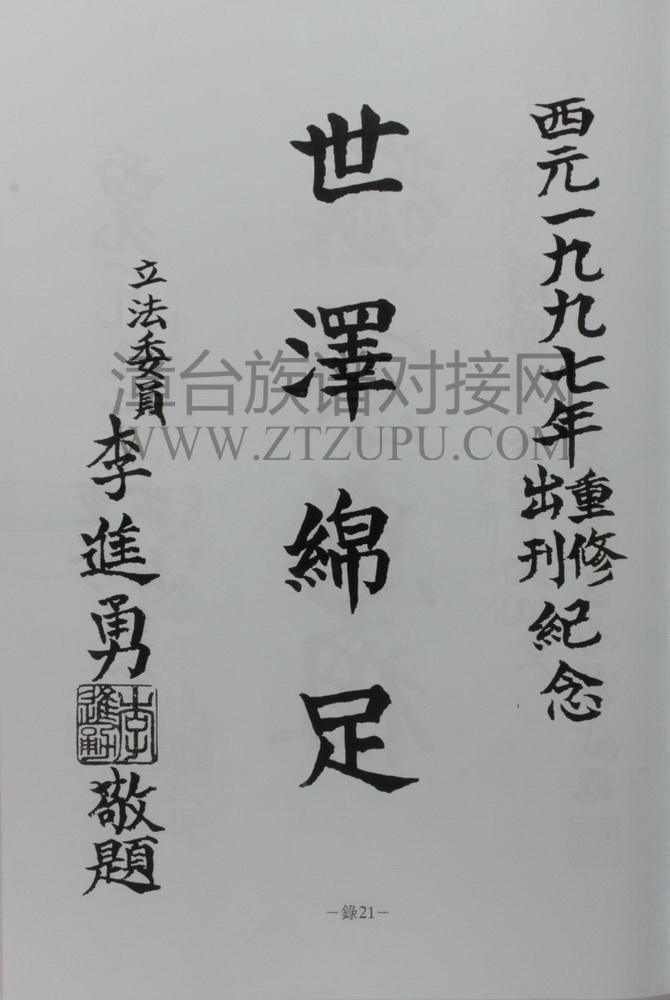 西元一九九七年重修出刊紀念
世澤綿足
立法委員李進勇敬題
李進勇
漳台族谱对接网
WWW.ZTZUPU.COM
－錄21－